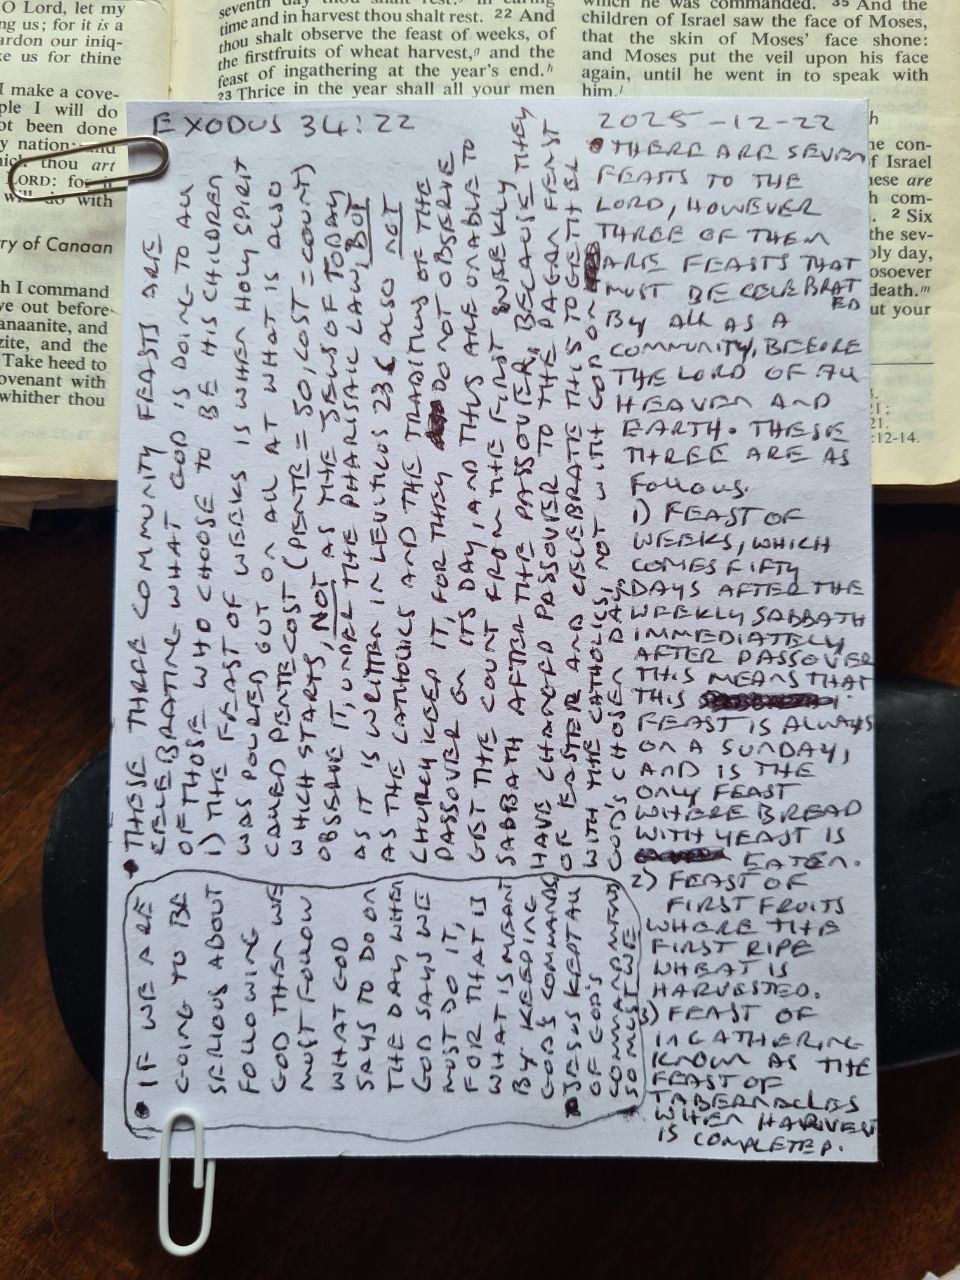 O Lord, let my
ng us; for it is a
ardon our iniq-
ke us for thine
I make a cove-
ple I will do
ot been done
y nation: and
hich thou art
LORD: for it
will do with
ry of Canaan
h I command
ve out before
anaanite, and
zite, and the
Take heed to
ovenant with
whither thou
seventh day thou shalt rest: in earing
time and in harvest thou shalt rest. 22 And
thou shalt observe the feast of weeks, of
the firstfruits of wheat harvest,g and the
feast of ingathering at the year's end.h
23 Thrice in the year shall all your men
which he was commanded. 35 And the
children of Israel saw the face of Moses,
that the skin of Moses' face shone:
and Moses put the veil upon his face
again, until he went in to speak with
him.l
h
he con-
f Israel
hese are
h com-
. 2 Six
the sev-
oly day,
osoever
death.m
ut your
3.
21:
21.
:12-14.
EXODUS 34:22
2025-12-22
• THERE ARE SEVEN
FEASTS TO THE
LORD, HOWEVER
THREE OF THEM
ARE FEASTS THAT
MUST BE CELEBRAT
ED
By All AS A
COMMUNITY, BEFORE
THE LORD OF All
HEAVEN AND
EARTH. THESE
THREE ARE AS
Follows.
1) FEAST OF
WEEKS, WHICH
COMES FIFTY
DAYS AFTER THE
WEEKLY SABBATH
IMMEDIATELY
AFTER PASSOVER
THIS MEANS THAT
THIS
FEAST IS ALWAYS
ON A SUNDAY,
AND IS THE
ONLY FEAST
WHERE BREAD
WITH YEAST IS
EATEN.
2) FEAST OF
FIRST FRUITS
WHERE THE
FIRST RIPE
WHEAT IS
HARVESTED.
3) FEAST OF
INGATHERING
KNOWN AS THE
FEAST OF
TABERNACLES
WHEN HARVEST
IS COMPLETED.
• THESE THREE COMMUNITY FEASTS ARE
CELEBRATING WHAT GOD IS DOING TO All
OF THOSE WHO CHOOSE TO BE HIS CHILDREN
1) THE FEAST OF WEEKS IS WHEN HOLY SPIRIT
WAS POURED OUT ON All AT WHAT IS ALSO
CALLED PENTECOST (PENTE = 50, COST = COUNT)
WHICH STARTS, NOT AS THE JEWS OF TODAY
OBSERVE IT, UNDER THE PHARISAIC LAW, BUT
AS IT IS WRITTEN IN LEVITICUS 23 & ALSO NOT
AS THE CATHOLICS AND THE TRADITIONS OF THE
CHURCH KEEP IT, FOR THEY DO NOT OBSERVE
PASSOVER ON ITS DAY, AND THUS ARE UNABLE TO
GET THE COUNT FROM THE FIRST WEEKLY
SABBATH AFTER THE PASSOVER, BECAUSE THEY
HAVE CHANGED PASSOVER TO THE PAGAN FEAST
OF EASTER AND CELEBRATE THIS TOGETHER
WITH THE CATHOLICS, NOT WITH GOD ON
GOD'S CHOSEN DAY.
• IF WE ARE
GOING TO BE
SERIOUS ABOUT
FOLLOWING
GOD THEN WE
MUST FOLLOW
WHAT GOD
SAYS TO DO ON
THE DAY WHEN
GOD SAYS WE
MUST DO IT,
FOR THAT IS
WHAT IS MEANT
BY KEEPING
GOD'S COMMANDS
• JESUS KEPT All
OF GOD'S
COMMANDMENTS
SO MUST WE